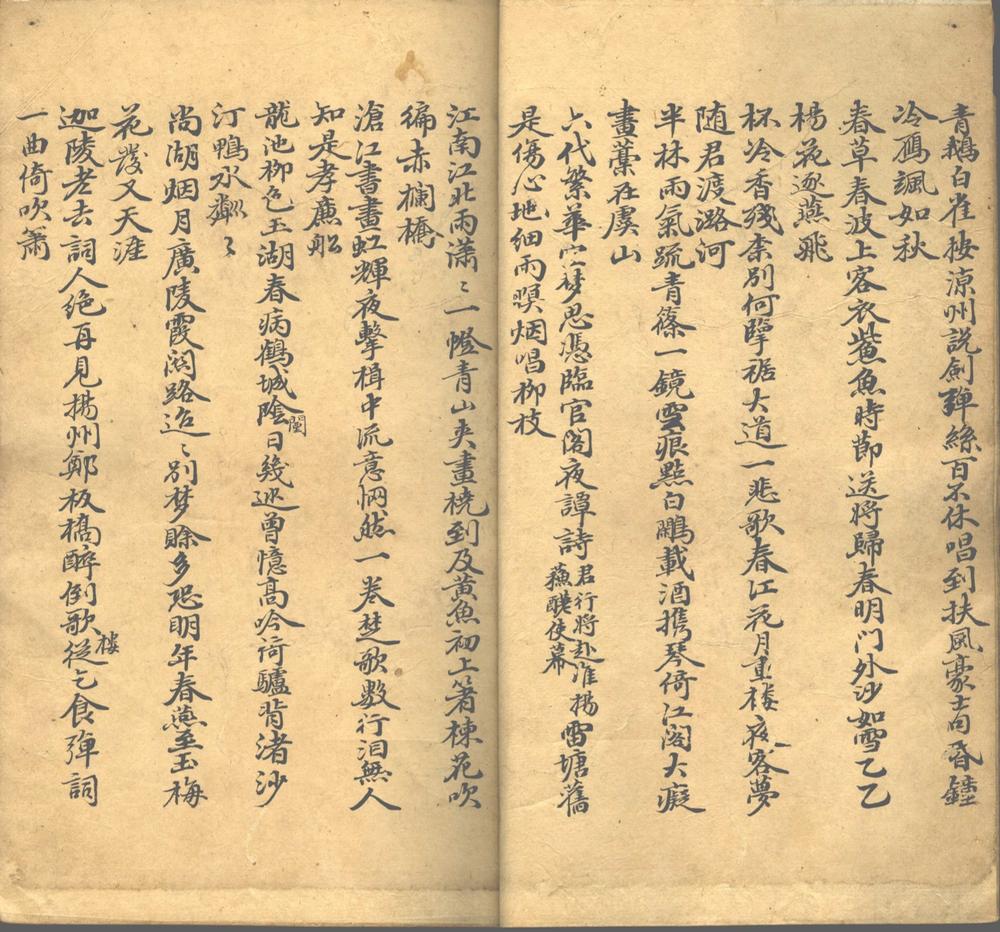 青鵝白雀按涼州說劍彈絲百不休唱到扶風豪士句昏鐘
冷鴈颯如秋
春草春波上客衣鮆魚時節送將歸春明門外沙如雪乙乙
楊花逐燕飛
杯冷香殘柰別何擘裾大道一悲歌春江花月重樓夜客夢
随君渡潞河
半林雨氣疏青篠一鏡雲痕點白鷳載酒携琴倚江閣大癡
畫藁在虞山
六代繁華夢思憑臨官閣夜譚詩君行將赴淮揚
鹺使幕雷塘舊
是傷心地細雨暝烟唱柳枝
江南江北雨瀟〻一燈青山夾畫橈到及黄魚初上箸楝花吹
徧赤欄橋
滄江書畫虹輝夜擊楫中流意惘然一卷楚歌數行泪無人
知是孝廉船
龍池柳色玉湖春病鶴城陰閩日幾巡曾憶高吟詩驢背渚沙
汀鴨水粼〻
尚湖烟月廣陵霞澗路迢〻别梦賒多恐明年春燕至玉梅
花發又天涯
迦陵老去詞人绝再見揚州鄭板橋醉倒歌樓從乞食彈詞
一曲倚吹簫